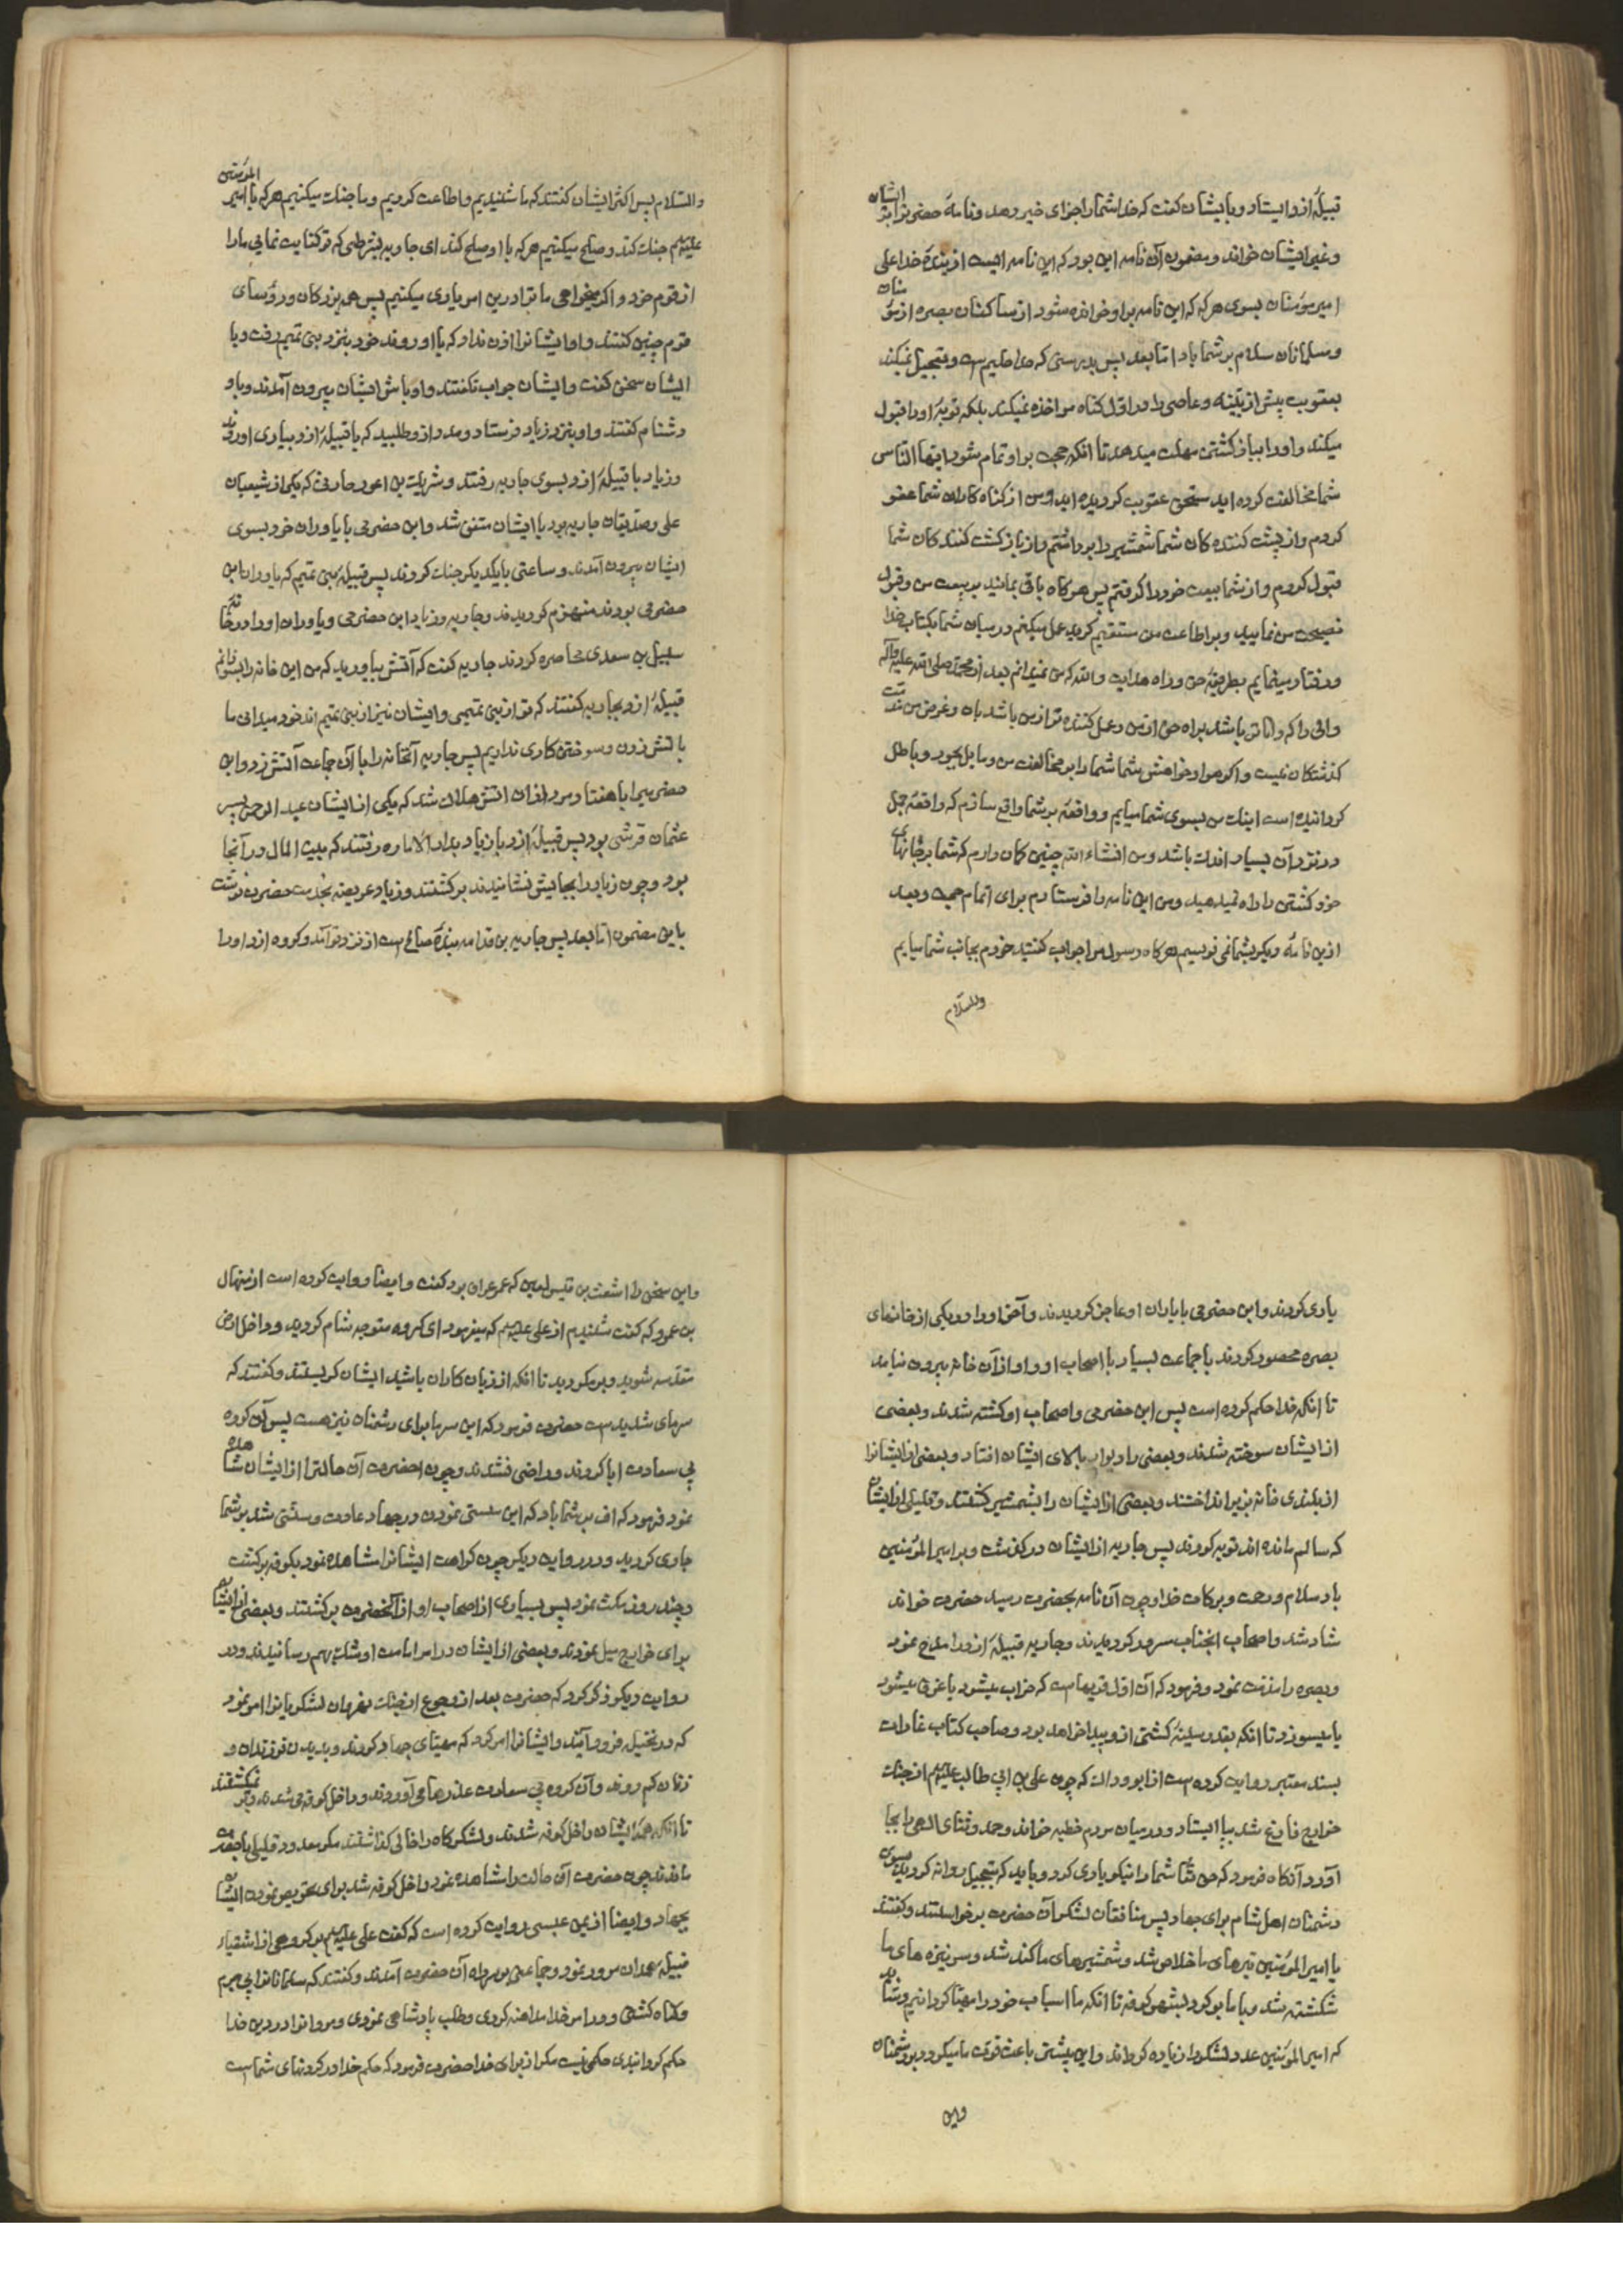 قبیلهٔ ازد ایستاد و بایشان گفت که خدا شما را جزای خیر دهد و نامهٔ حضرترا بر ایشان
و غیر ایشان خواند و مضمون آن نامه این بود که این نامه ایست از بندهٔ خدا علی
امیر مؤمنان بسوی هر که که این نامه بر او خوانده شود از ساکنان بصره از مؤمنان
و مسلمانان سلام بر شما باد اما بعد پس بدرستی که خدا حلیم است و تعجیل نمیکند
بعقوبت پیش از بینه و عاصی را در اول گناه مواخذه نمیکند بلکه توبهٔ او را قبول
میکند و او را بباز گشتن مهلت میدهد تا انکه حجت بر او تمام شود ایها الناس
شما مخالفت کرده اید مستحق عقوبت گردیده اید و من از گناه کاران شما عفو
کردم و از پشت کننده کان شما شمشیر را برداشتم و از باز گشت کنندکان شما
قبول کردم و از شما بیعت خود را گرفتم پس هر گاه باقی بمانید بر بیعت من و قبول
نصیحت من نمایید و بر اطاعت من مستقیم گردید عمل میکنم در میان شما بکتاب خدا
و رفتار مینمایم بطریقهٔ حق و راه هدایت والله که من نمیدانم بعد از محمد صلی الله علیه و آله
والی را که داناتر باشد براه حق از من و عمل کننده تر از من باشد بان و غرض من مذمت
گذشتگان نیست و اگر هوا و خواهش شما شما را بر مخالفت من و مایل بجور و باطل
گردانیده است اینک من بسوی شما میایم و واقعهٔ بر شما واقع سازم که واقعهٔ جمل
در نزد آن بسیار اندک باشد و من انشاء الله چنین گمان دارم که شما بر جانهای
خود گشتن را راه نمیدهید و من این نامه را فرستادم برای اتمام حجت و بعد
از این نامهٔ دیگر بشما نمی نویسم هر گاه رسول مرا جواب گفتید خودم بجانب شما میایم
والسلام
والسلام پس اکثر ایشان گفتند که ما شنیدیم و اطاعت کردیم و ما جنگ میکنیم هر که با امیر المؤمنین
علیه السلام جنگ کند و صلح میکنیم هر که با او صلح کند ای جاریه بشرطی که تو کفایت نمایی ما را
از قوم خود و اگر میخواهی ما ترا در این امر یاری میکنیم پس همه بزرگان و رؤسای
قوم چنین گفتند و او ایشانرا اذن نداد که با او روند خود بنزد بنی تمیم رفت و با
ایشان سخن گفت و ایشان جواب نگفتند و اوباش ایشان بیرون آمدند و باو
دشنام گفتند و او بنزد زیاد فرستاد و مدد از و طلبید که با قبیلهٔ ازد بیاری او روند
و زیاد با قبیلهٔ ازد بسوی جاریه رفتند و شریک بن اعور حارثی که یکی از شیعیان
علی و صدیقان جاریه بود با ایشان متفق شد و ابن حضرمی با یاوران خود بسوی
ایشان بیرون آمدند و ساعتی با یکدیگر جنگ کردند پس قبیلهٔ بنی تمیم که یاوران ابن
حضرمی بودند منهزم گردیدند و جاریه و زیاد ابن حضرمی و یاوران او را در خانه
سبیل بن سعدی محاصره کردند جاریه گفت که آتش بیاورید که من این خانه را بسوزانم
قبیلهٔ ازد بجاریه گفتند که تو از بنی تمیمی و ایشان نیز از بنی تمیم اند خود میدانی ما
باتش زدن و سوختن کاری نداریم پس جاریه آنخانه را با آن جماعت آتش زد و ابن
حضرمی با هفتاد مرد از ان اتش هلاک شد که یکی از ایشان عبد الرحمن پسر
عثمان قرشی بود پس قبیلهٔ ازد با زیاد بدار الاماره رفتند که بیت المال در آنجا
بود و چون زیاد را بجایش نشانیدند بر گشتند و زیاد عریضه بخدمت حضرت نوشت
باین مضمون اما بعد پس جاریه بن قدامه بندهٔ صالح است از نزد تو آمد و گروه ازد او را
یاری کردند و ابن حضرمی با یاران او عاجز گردیدند و آخر او را در یکی از خانهای
بصره محصور کردند با جماعت بسیار با اصحاب او و او از آن خانه بیرون نیامد
تا انکه خدا حکم کرده است پس ابن حضرمی و اصحاب او کشته شدند و بعضی
از ایشان سوخته شدند و بعضی را دیوار بالای ایشان افتاد و بعضی از ایشانرا
از بلندی خانه بزیر انداختند و بعضی از ایشان را بشمشیر کشتند و قلیلی از ایشان
که سالم مانده اند توبه کردند پس جاریه از ایشان در گذشت و بر امیر المؤمنین
باد سلام و رحمت و برکات خدا و چون آن نامه بحضرت رسید حضرت خواند
شاد شد و اصحاب انجناب سرور گردیدند و جاریه قبیلهٔ ازد را مدح نمود
و بصره را مذمت نمود و فرمود که آن اول قریها است که خراب میشود یا غرق میشود
یا میسوزد تا انکه بقدر سینهٔ کشتی از و پیدا خواهد بود و صاحب کتاب غارات
بسند معتبر روایت کرده است از ابو وداک که چون علی بن ابی طالب علیه السلام از جنگ
خوارج فارغ شد بپا ایستاد و در میان مردم خطبه خواند و حمد و ثنای الهی را بجا
اورد آنگاه فرمود که حق تعالی شما را نیکو یاری کرد و باید که بتعجیل روانه گردید بسوی
دشمنان اهل شام برای جهاد پس منافقان لشکر آن حضرت بر خواستند و گفتند
یا امیر المؤمنین تیرهای ما خلاص شد و شمشیرهای ما کند شد و سر نیزه های ما
شکشته شد و با ما بر گرد بشهر کوفه تا انکه ما اسباب خود را مهیا گردانیم و شاید
که امیر المؤمنین عدد لشکر را زیاده گرداند و این بیشتر باعث قوت ما میگردد بر دشمنان
واین
و این سخن را اشعث بن قیس لعین که عمر عران بود گفت و ایضا روایت کرده است از منهال
بن عمرو که گفت شنیدم از علی علیه السلام که میفرمود ای گروه متوجه شام گردید و داخل ارض
مقدسه شوید و بر مگردید تا انکه از زیان کاران باشید ایشان گریستند و گفتند که
سرمای شدید است حضرت فرمود که این سرما برای دشمنان نیز هست پس آن گروه
بی سعادت ابا کردند و راضی نشدند و چون احضرت آن حالترا از ایشان مشاهده
نمود فرمود که اف بر شما باد که این سستی نمودن در جهاد عادت و سنتی شد بر شما
جاری گردید و در روایت دیگر چون کراهت ایشانرا مشاهده نمود بکوفه بر گشت
و چند روز مکث نمود پس بسیاری از اصحاب او از آنحضرت بر گشتند و بعضی از ایشان
برای خوارج میل نمودند و بعضی از ایشان در امر امامت او شک بهم رسانیدند و در
روایت دیگر ذکر کرد که حضرت بعد از رجوع از جنگ نهروان لشکریانرا امر نمود
که در نخیله فرود آیند و ایشانرا امر کرد که مهیای جهاد گردند و بدیدن فرزندان و
زنان کم روند و آن گروه بی سعادت عذرها می آوردند و داخل کوفه می شدند و بر نمیگشتند
تا انکه همهٔ ایشان داخل کوفه شدند و لشکر گاه را خالی گذاشتند مگر معدود قلیلی با حضرت
ماندند چون حضرت آن حالت را مشاهده نمود داخل کوفه شد برای تحریص نمودن ایشان
بجهاد و ایضا از یمن عبسی روایت کرده است که گفت علی علیه السلام بر گروهی از اشقیاء
قبیله همدان مرور نمود و جماعتی بر سر راه آن حضرت آمدند و گفتند که مسلمانانرا بی جرم
و گناه کشتی و در امر خدا مداهنه کردی و طلب پادشاهی نمودی و مردانرا در دین خدا
حکم گردانیدی حکمی نیست مگر از برای خدا حضرت فرمود که حکم خدا در گردنهای شما است